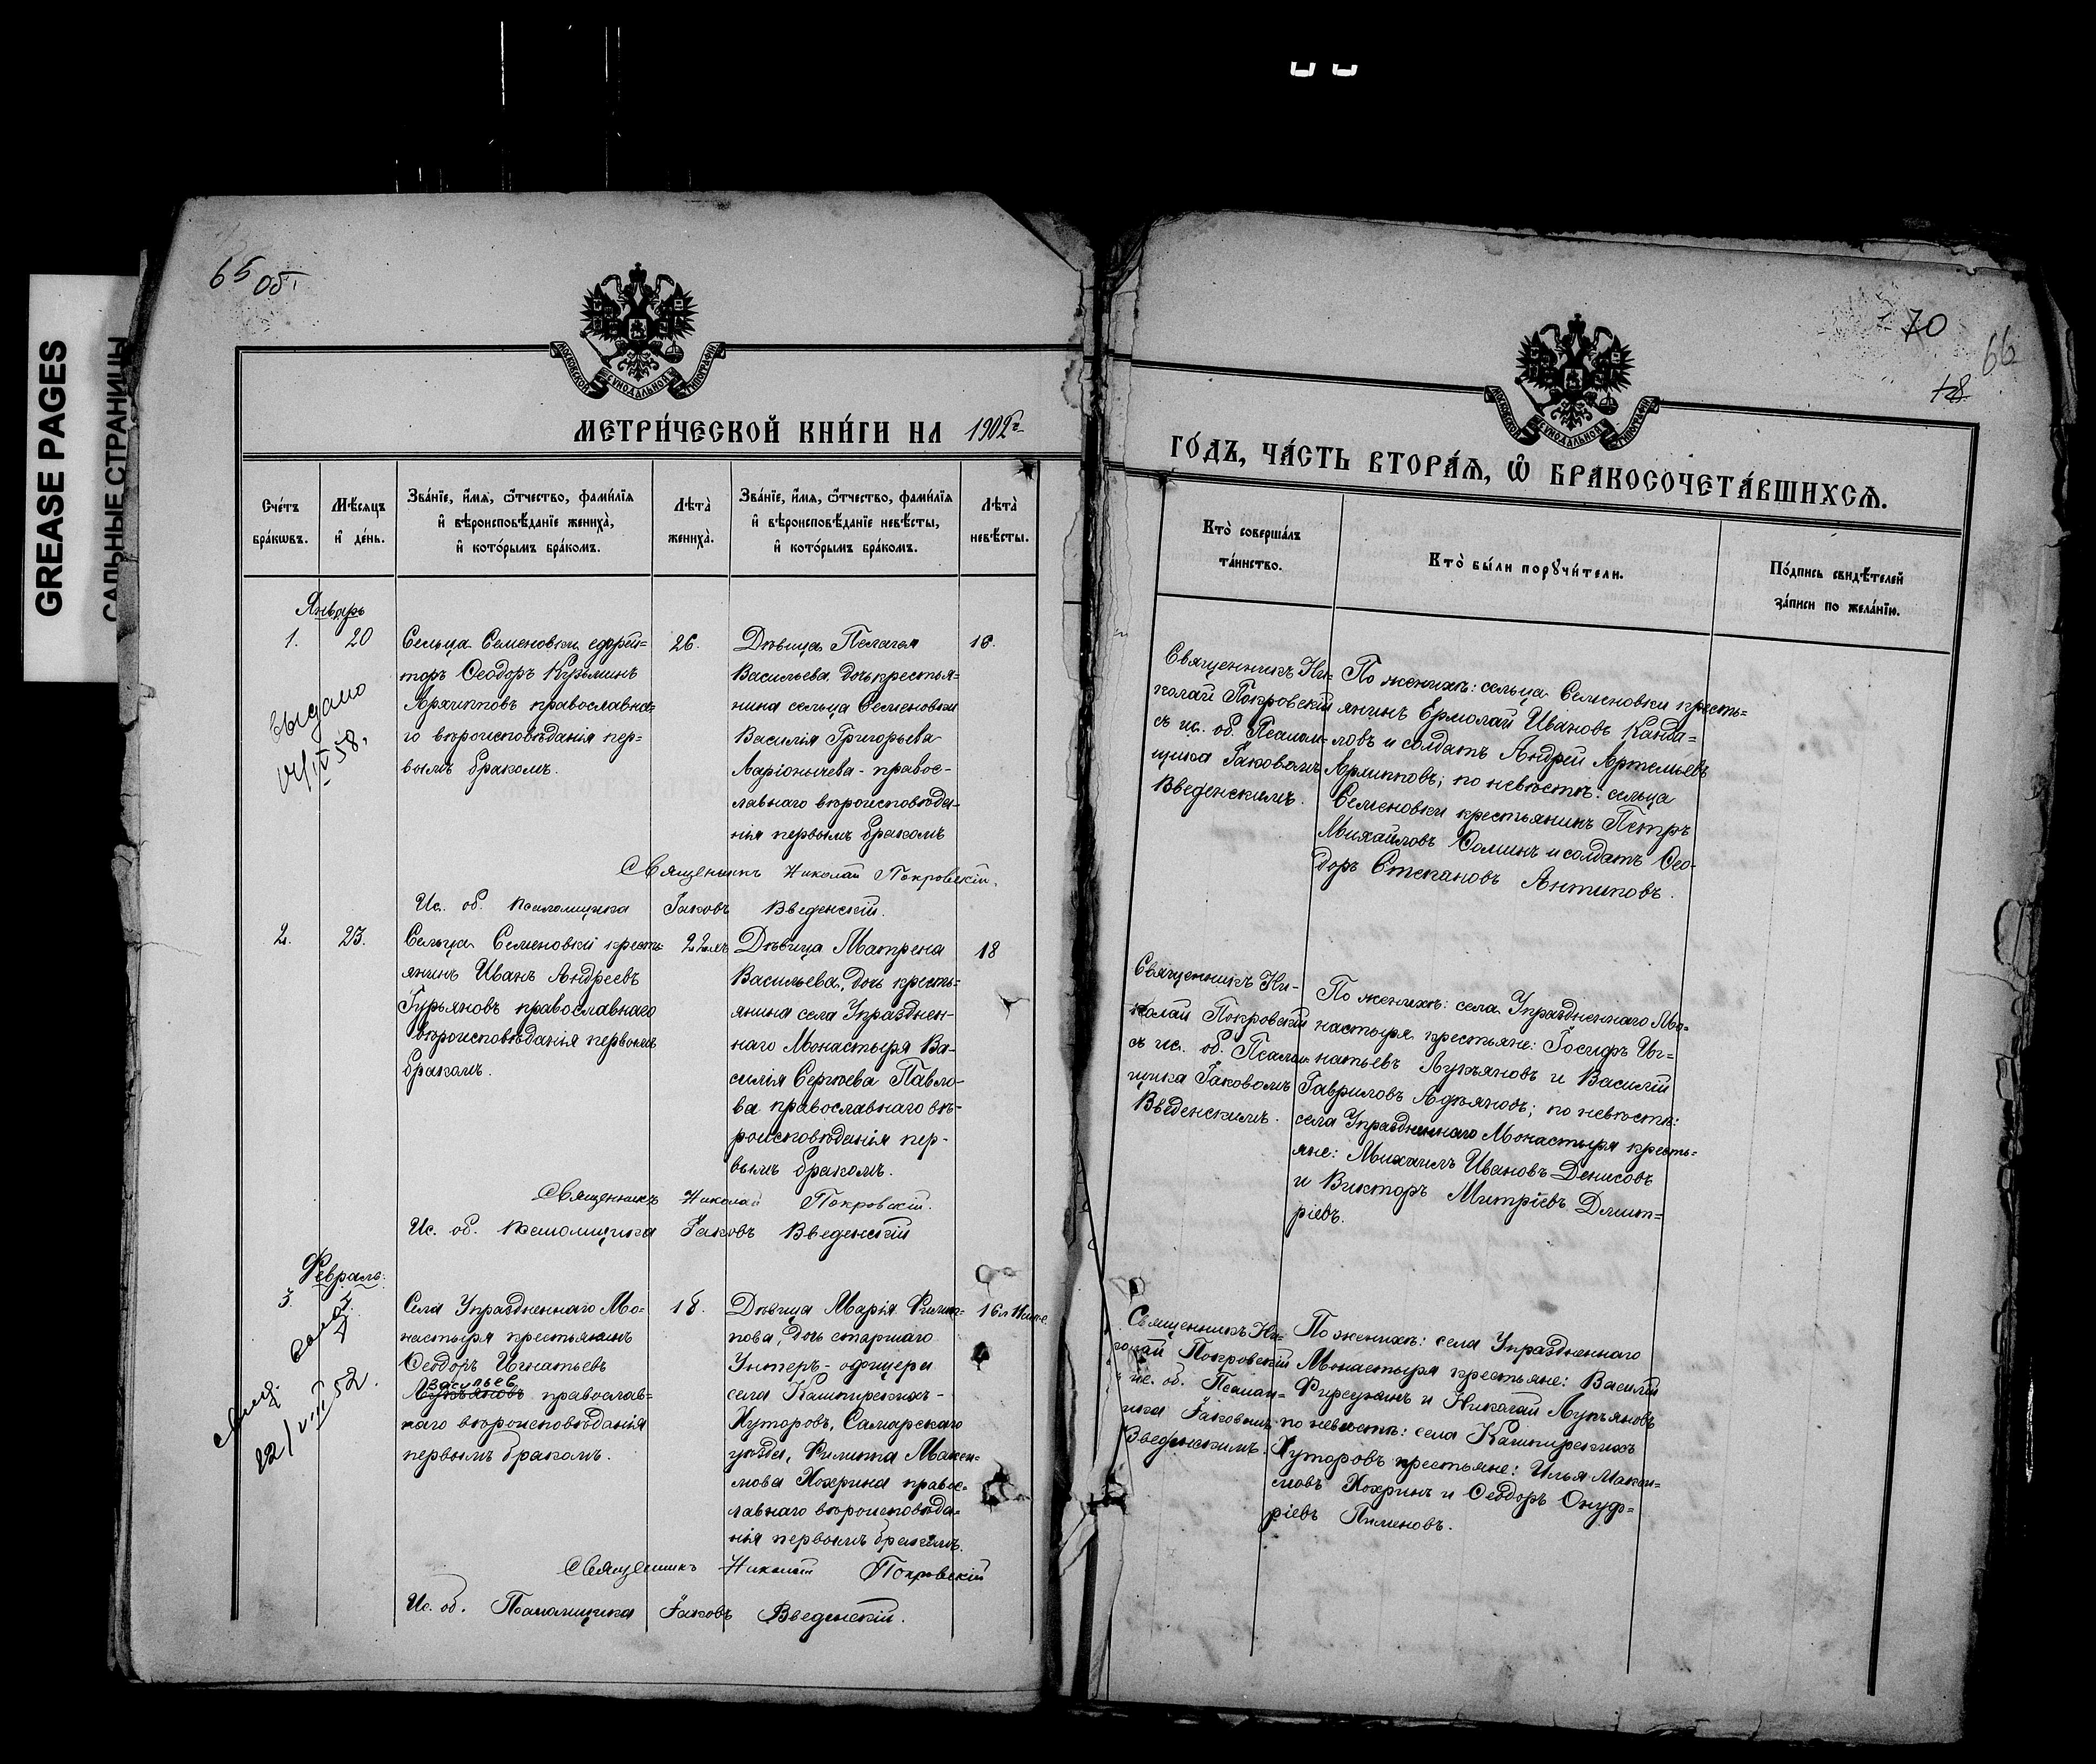 GREASE PAGES
САЛЬНЫЕ СТРАНИЦЫ
65 об.
МОСКОВСКОЙ СѴНОДАЛЬНОЙ ТИПОГРАФІИ
МЕТРИ́ЧЕСКОЙ КНИ́ГИ НА 1902 г.
Сче́тъ бра́кѡвъ.
Мѣ́сяцъ и҆ де́нь.
Зва́нїе, и҆́мя, ѻ҆́тчество, фами́лїя
и҆ вѣроисповѣ́данїе жениха̀,
и҆ кото́рымъ бра́комъ.
Лѣта̀ жениха̀.
Зва́нїе, и҆́мя, ѻ҆́тчество, фами́лїя
и҆ вѣроисповѣ́данїе невѣ́сты,
и҆ кото́рымъ бра́комъ.
Лѣта̀ невѣ́сты.
Январь
1.
20
выдано
58,
Сельца Семеновки ефрей=
торъ Ѳеодоръ Кузьминъ
Архипповъ православна=
го вѣроисповѣданія пер=
вымъ бракомъ.
26.
Дѣвица Пелагея
Васильева, дочь крестья=
нина сельца Семеновки
Василія Григорьева
Ларіонычева - правос=
лавнаго вѣроисповѣда=
нія первымъ бракомъ
16.
Священникъ Николай Покровскій.
Ис. об. псаломщика Іаковъ Введенскій.
2.
23.
Сельца Семеновки кресть=
янинъ Иванъ Андреевъ
Гурьяновъ православнаго
вѣроисповѣданія первымъ
бракомъ.
22
Дѣвица Матрена
Васильева, дочь кресть=
янина села Упразднен=
наго Монастыря Ва=
силія Сергѣева Павло=
ва православнаго вѣ=
роисповѣданія пер=
вымъ бракомъ.
18
Священникъ Николай Покровскій.
Ис. об. псаломщика Іаковъ Введенскій
Февраль.
3.
22/VIII 52.
Села Упраздненнаго Мо=
настыря крестьянинъ
Ѳеодоръ Игнатьевъ
Васильев
Лукъяновъ православ=
наго вѣроисповѣданія
первымъ бракомъ.
18.
Дѣвица Марія Филип=
пова, дочь старшаго
Унтеръ-офицера
села Кашпирскихъ-
Хуторовъ, Самарскаго
уѣзда, Филиппа Макси=
мова Кохрина правос=
лавнаго вѣроисповѣда=
нія первымъ бракомъ.
Священникъ Николай Покровскій
Ис. об. Псаломщика Іаковъ Введенскій.
70
66
18
МОСКОВСКОЙ СѴНОДАЛЬНОЙ ТИПОГРАФІИ
ГО́ДЪ, ЧА́СТЬ ВТОРА́Я, Ѽ БРАКОСОЧЕТА́ВШИХСЯ.
Кто̀ соверша́лъ та́инство.
Кто̀ бы́ли порꙋчи́тели.
По́дпись свидѣ́телей за́писи по жела́нїю.
Священникъ Ни=
колай Покровскій
съ ис. об. Псалом=
щика Іаковомъ
Введенскимъ.
По женихѣ: сельца Семеновки кресть=
янинъ Ермолай Ивановъ
ловъ и солдатъ Андрей Артемьевъ
Архипповъ; по невѣстѣ: сельца
Семеновки крестьянинъ Петръ
Михайловъ Ѳоминъ и солдатъ Ѳео=
доръ Степановъ Антиповъ.
Священникъ Ни=
колай Покровскій
съ ис. об. Псалом=
щика Іаковомъ
Введенскимъ.
По женихѣ: села Упраздненнаго Мо=
настыря крестьяне: Іосифъ Иг=
натьевъ Лукъяновъ и Василій
Гавриловъ; по невѣстѣ:
села Упраздненнаго Монастыря кресть=
яне: Михаилъ Ивановъ Денисовъ
и Викторъ Митріевъ Дмит=
ріевъ.
Священникъ Ни=
колай Покровскій
съ ис. об. Псалом=
щика Іаковомъ
Введенскимъ.
По женихѣ: села Упраздненнаго
Монастыря крестьяне: Василій
и Николай Лукъяновъ
по невѣстѣ: села Кашпирскихъ
Хуторовъ крестьяне: Илья Макси=
мовъ Кохринъ и Ѳеодоръ Онуф=
ріевъ Пименовъ.